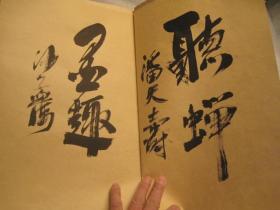 聽蟬
潘天壽
墨趣
沙孟海